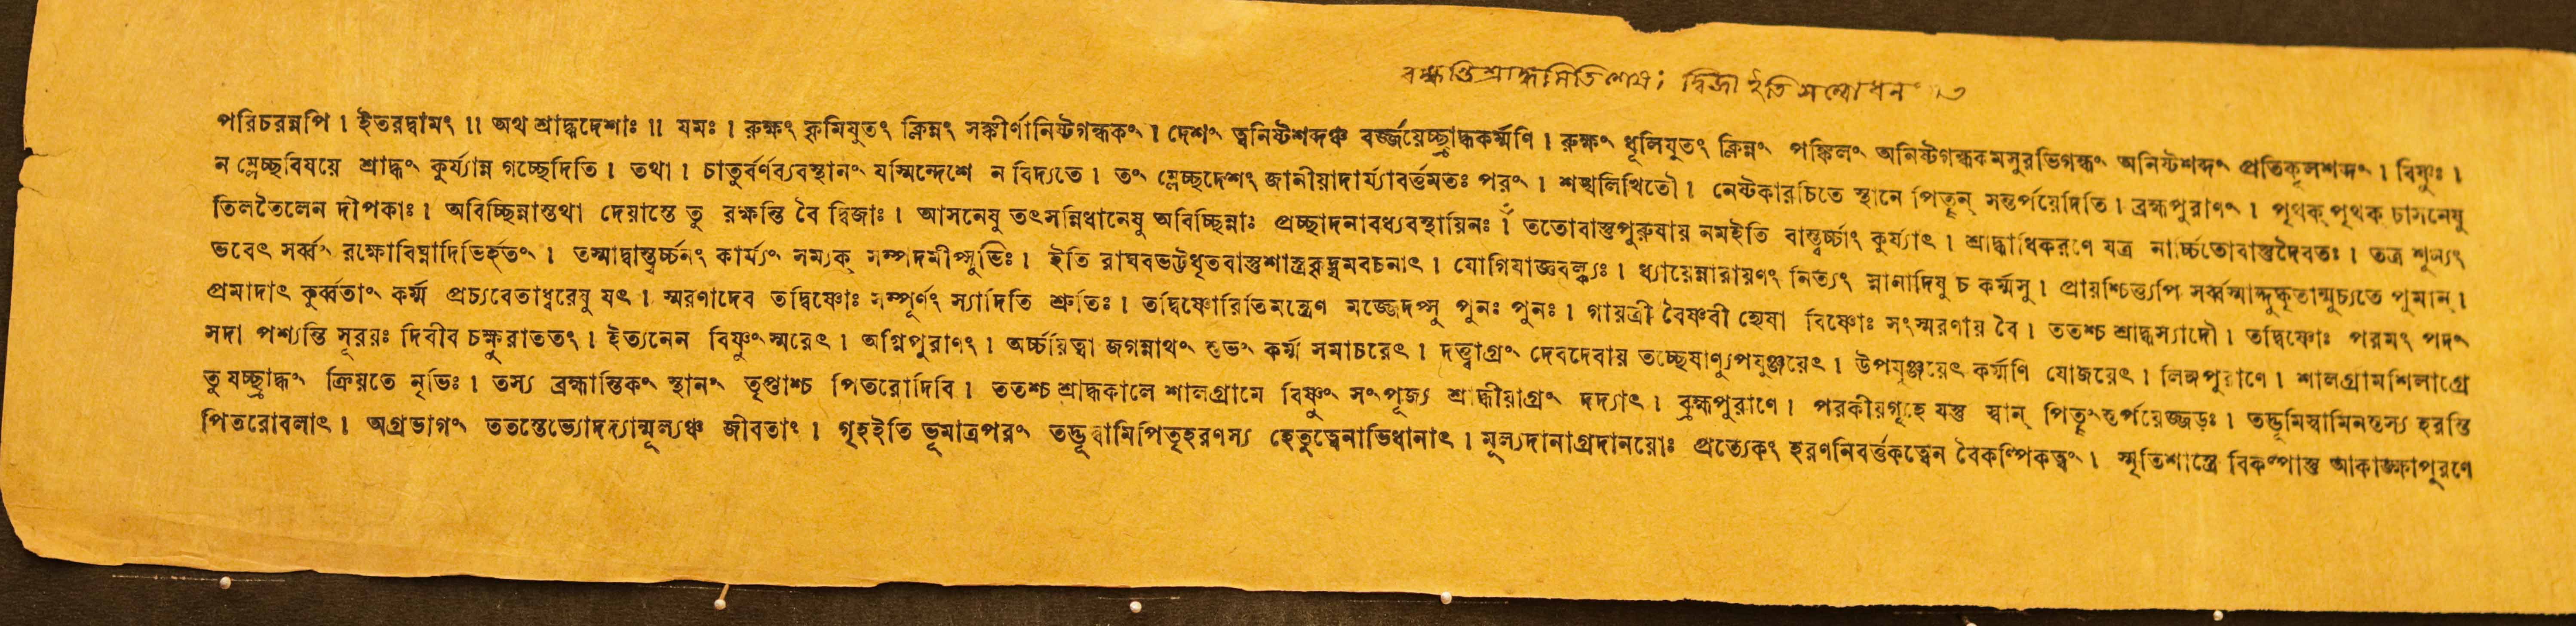 দ্বিজা ইতি সম্বোধনং
পরিচরন্নপি । ইতরদ্বামং ॥ অথ শ্রাদ্ধদেশাঃ ॥ যমঃ । রুক্ষং কৃমিযুতং ক্লিন্নং সঙ্কীর্ণানিষ্টগন্ধকং । দেশং ত্বনিষ্টশব্দঞ্চ বর্জ্জয়েচ্ছ্রাদ্ধকর্ম্মণি । রুক্ষং ধূলিযুতং ক্লিন্নং পঙ্কিলং অনিষ্টগন্ধকমসুরভিগন্ধং অনিষ্টশব্দং প্রতিকূলশব্দং । বিষ্ণুঃ ।
ন ম্লেচ্ছবিষয়ে শ্রাদ্ধং কুর্য্যান্ন গচ্ছেদিতি । তথা । চাতুর্বর্ণব্যবস্থানং যস্মিন্দেশে ন বিদ্যতে । তং ম্লেচ্ছদেশং জানীয়াদার্য্যাবর্ত্তমতঃ পরং । শঙ্খলিখিতৌ । নেষ্টকারচিতে স্থানে পিতৄন্ সন্তর্পয়েদিতি । ব্রহ্মপুরাণং । পৃথক্ পৃথক্ চাসনেষু
তিলতৈলেন দীপকাঃ । অবিচ্ছিন্নাস্তথা দেয়াস্তে তু রক্ষন্তি বৈ দ্বিজাঃ । আসনেষু তৎসন্নিধানেষু অবিচ্ছিন্নাঃ প্রচ্ছাদনাবধ্যবস্থায়িনঃ । ততোবাস্তুপুরুষায় নমইতি বাস্ত্বর্চ্চাং কুর্য্যাৎ । শ্রাদ্ধাধিকরণে যত্র নার্চ্চিতোবাস্তুদৈবতঃ । তত্র শূন্যং
ভবেৎ সর্ব্বং রক্ষোবিঘ্নাদিভির্হৃতং । তস্মাদ্বাস্ত্বর্চ্চনং কার্য্যং সম্যক্ সম্পদমীপ্সুভিঃ । ইতি রাঘবভট্টধৃতবাস্তুশাস্ত্রকল্পদ্রুমবচনাৎ । যোগিযাজ্ঞবল্ক্যঃ । ধ্যায়েন্নারায়ণং নিত্যং স্নানাদিষু চ কর্ম্মসু । প্রায়শ্চিত্ত্যপি সর্ব্বস্মাদ্দুষ্কৃতান্মুচ্যতে পুমান্ ।
প্রমাদাৎ কুর্ব্বতাং কর্ম্ম প্রচ্যবেতাধ্বরেষু যৎ । স্মরণাদেব তদ্বিষ্ণোঃ সম্পূর্ণং স্যাদিতি শ্রুতিঃ । তদ্বিষ্ণোরিতিমন্ত্রেণ মজ্জেদপ্সু পুনঃ পুনঃ । গায়ত্রী বৈষ্ণবী হ্যেষা বিষ্ণোঃ সংস্মরণায় বৈ । ততশ্চ শ্রাদ্ধস্যাদৌ । তদ্বিষ্ণোঃ পরমং পদং
সদা পশ্যন্তি সূরয়ঃ দিবীব চক্ষুরাততং । ইত্যনেন বিষ্ণুংস্মরেৎ । অগ্নিপুরাণং । অর্চ্চয়িত্বা জগন্নাথং শুভং কর্ম্ম সমাচরেৎ । দত্ত্বাগ্রং দেবদেবায় তচ্ছেষাণ্যুপযুঞ্জয়েৎ । উপযুঞ্জয়েৎ কর্ম্মণি যোজয়েৎ । লিঙ্গপুরাণে । শালগ্রামশিলাগ্রে
তু যচ্ছ্রাদ্ধং ক্রিয়তে নৃভিঃ । তস্য ব্রহ্মান্তিকং স্থানং তৃপ্তাশ্চ পিতরোদিবি । ততশ্চ শ্রাদ্ধকালে শালগ্রামে বিষ্ণুং সংপূজ্য শ্রাদ্ধীয়াগ্রং দদ্যাৎ । ব্রহ্মপুরাণে । পরকীয়গৃহে যস্তু স্বান্ পিতৄংস্তর্পয়েজ্জড়ঃ । তদ্ভূমিস্বামিনস্তস্য হরন্তি
পিতরোবলাৎ । অগ্রভাগং ততস্তেভ্যোদদ্যান্মূল্যঞ্চ জীবতাং । গৃহইতি ভূমাত্রপরং তদ্ভূস্বামিপিতৃহরণস্য হেতুত্বেনাভিধানাৎ । মূল্যদানাগ্রদানয়োঃ প্রত্যেকং হরণনিবর্ত্তকত্বেন বৈকল্পিকত্বং । স্মৃতিশাস্ত্রে বিকল্পাস্তু আকাঙ্ক্ষাপূরণে